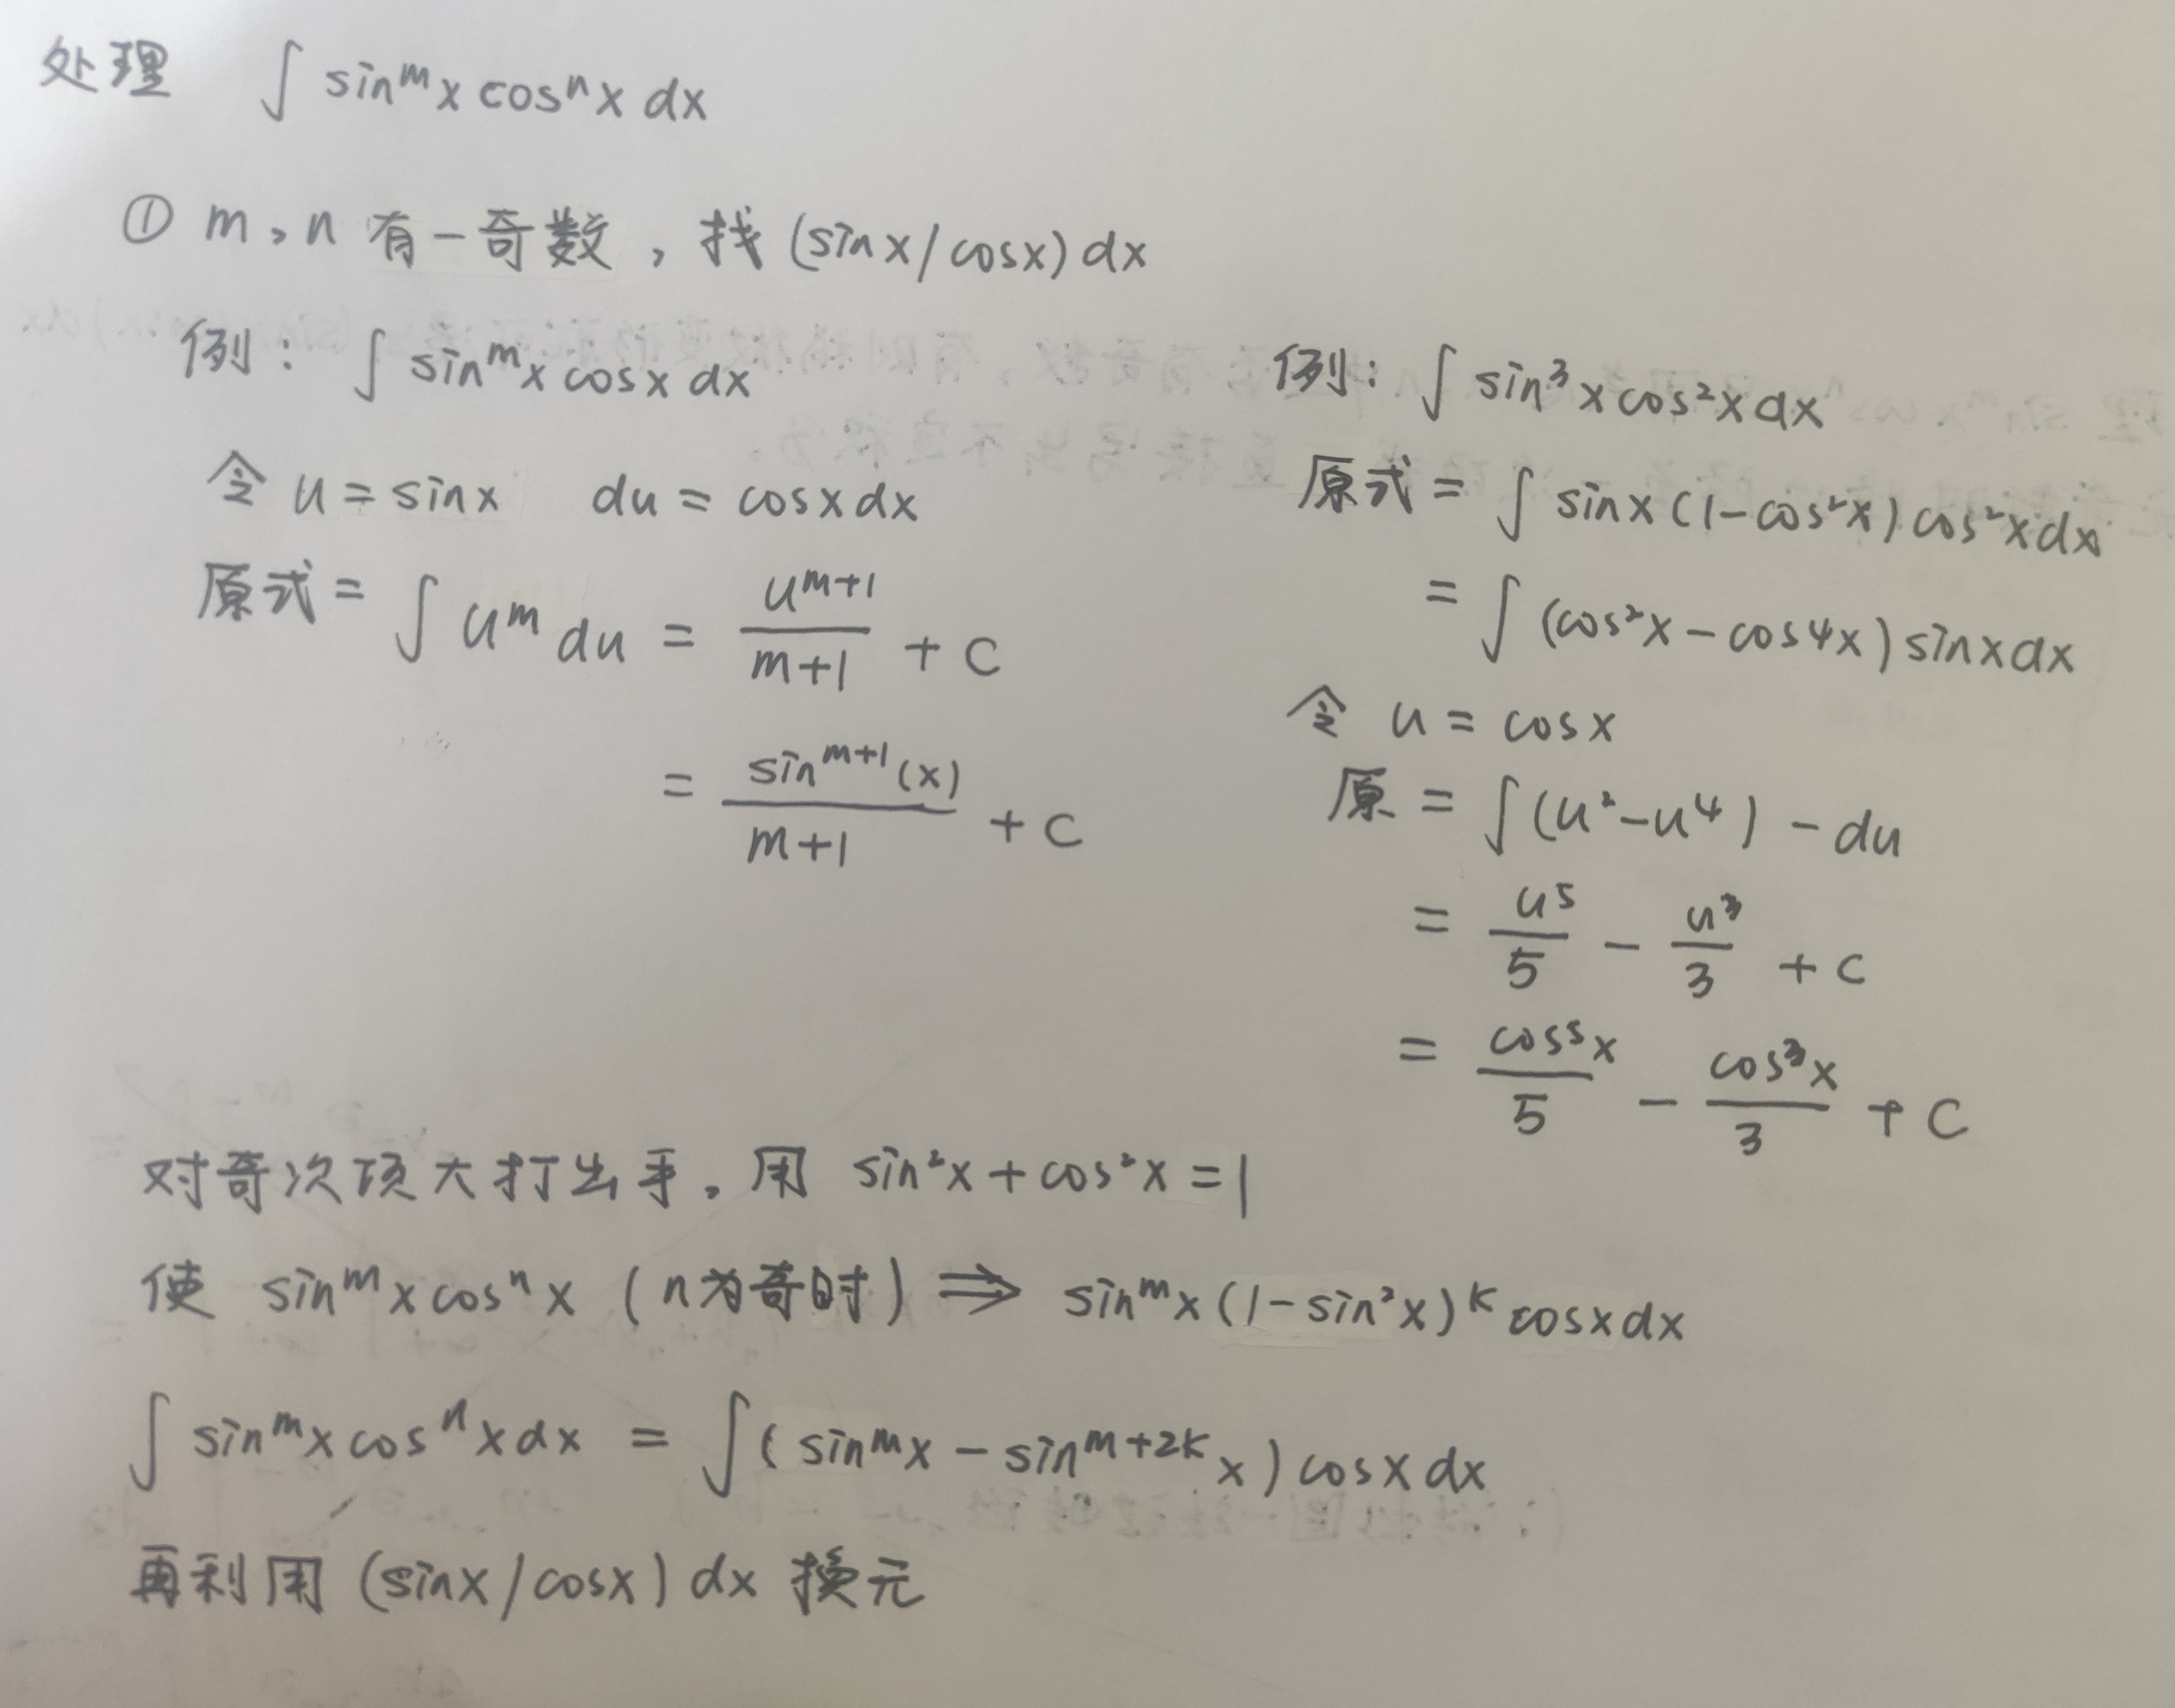 处理 ∫ sinᵐx cosⁿx dx
① m,n 有一奇数,找 (sinx/cosx) dx
例: ∫ sinᵐx cosx dx
令 u = sinx du = cosxdx
原式 = ∫ uᵐ du = uᵐ⁺¹/m+1 + C
= sinᵐ⁺¹(x)/m+1 + C
例: ∫ sin³x cos²x dx
原式 = ∫ sinx (1-cos²x) cos²x dx
= ∫ (cos²x - cos4x) sinx dx
令 u = cosx
原 = ∫ (u²-u⁴) - du
= u⁵/5 - u³/3 + C
= cos⁵x/5 - cos³x/3 + C
对奇次项大打出手。用 sin²x + cos²x = 1
使 sinᵐx cosⁿx (n为奇时) ⇒ sinᵐx (1-sin²x)ᵏ cosxdx
∫ sinᵐx cosⁿx dx = ∫ (sinᵐx - sinᵐ⁺²ᵏx) cosx dx
再利用 (sinx/cosx) dx 换元